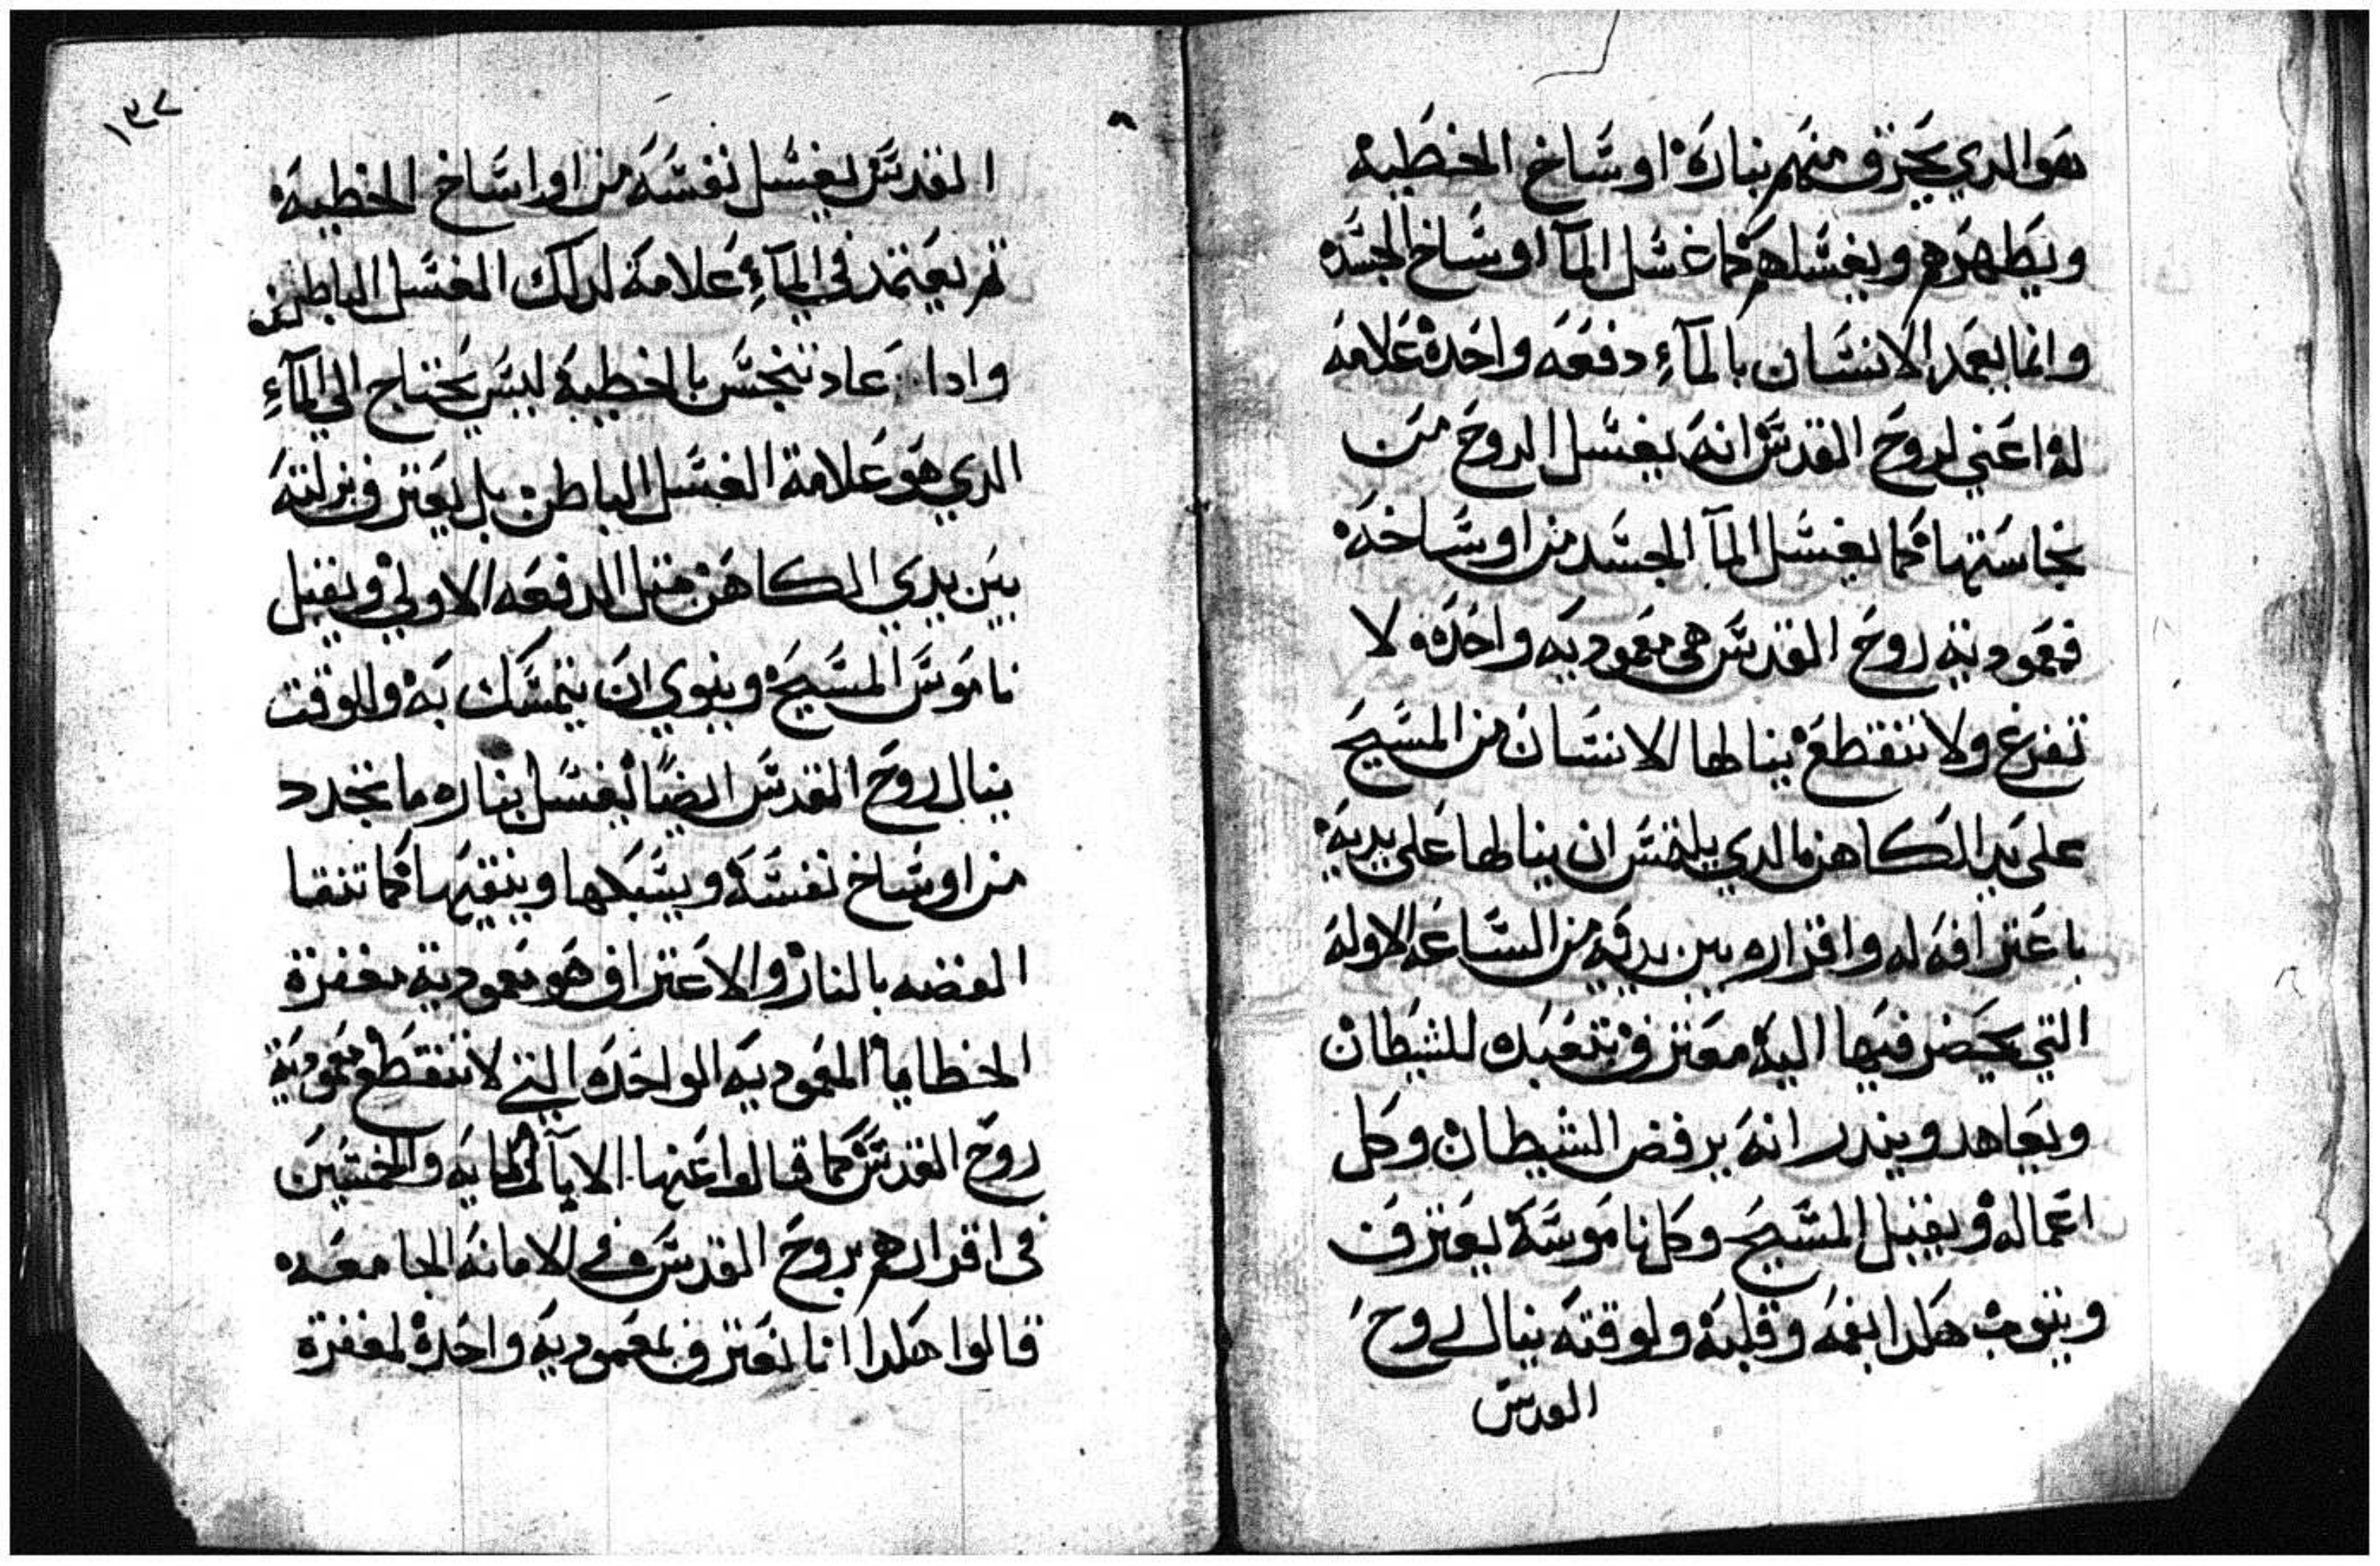 هو الدي يحرق منهم بناره اوساخ الخطيه
ويطهرهم ويغسلهم كما غسل المآ اوساخ الجسد
وانما يعمد الانسان بالمآء دفعه واحده علامه
له اعني لروح القدس انه يغسل الروح من
نجاستها كما يغسل المآ الجسد من اوساخه
فمعمودية روح القدس هي معموديه واحده لا
تفرغ ولا تنقطع ينالها الانسان من المسيح
على يد الكاهن الدي يلتمس ان ينالها على يديه
باعترافه له واقراره بين يديه من الساعه الاوله
التي يحضر فيها اليه معترف بتعبده للشيطان
ويعاهد ويندر انه يرفض الشيطان وكل
اعماله ويقبل المسيح وكل ناموسه يعترف
وينوب هكدا بفمه وقلبه ولوقته ينال روح
القدس
١٣٧
القدس يغسل نفسه من اوساخ الخطيه
تم يعتمد في المآء علامة لدلك الغسل الباطن
وادا عاد تنجس بالخطية ليس يحتاج الى المآء
الدي هو علامة الغسل الباطن بل يعترف بزلته
بين يدي الكاهن متل الدفعه الاولي ويقبل
ناموس المسيح وينوي ان يتمسك به والوقت
ينال روح القدس ايضًا ليغسل بناره ما تجدد
من اوساخ نفسه ويسبكها وينقيها كما تنقا
الفضه بالنار والاعتراف هو معمودية مغفرة
الخطايا المعموديه الواحده التي لا تنقطع معمودية
روح القدس كما قالوا عنها الابآ التلتمايه والخمسين
في اقرارهم بروح القدس في الامانه الجامعه
قالوا هكدا انا نعترف بمعموديه واحدة لمغفرة